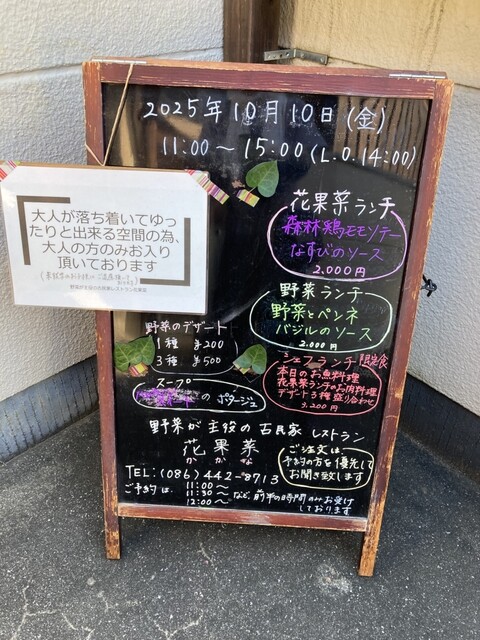 2025年10月10日(金)
11:00～15:00(L.O.14:00)
大人が落ち着いてゆっ
たりと出来る空間の為、
大人の方のみお入り
頂いております
花果菜ランチ
森林鶏モモソテー
なすびのソース
2,000円
野菜ランチ
野菜とペンネ
バジルのソース
2,000円
野菜のデザート
1種 ¥200
3種 ¥500
シェフランチ 限定食
本日のお魚料理
花果菜ランチのお肉料理
デザート3種盛り合わせ
3,200円
スープ
のポタージュ
野菜が主役の古民家レストラン
花果菜
かかな
TEL:(086)442-8713
ご予約は、
11:00～
11:30～
12:00～
など、前半の時間のみお受け
しております
ご注文は、
予約の方を優先して
お聞き致します